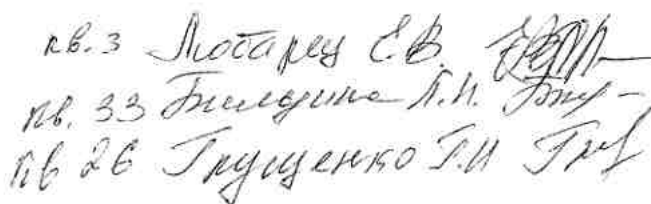 кв. 3 Лютарец Е.В.
кв. 33 Билодина Л.И.
кв 26 Грущенко Г.И